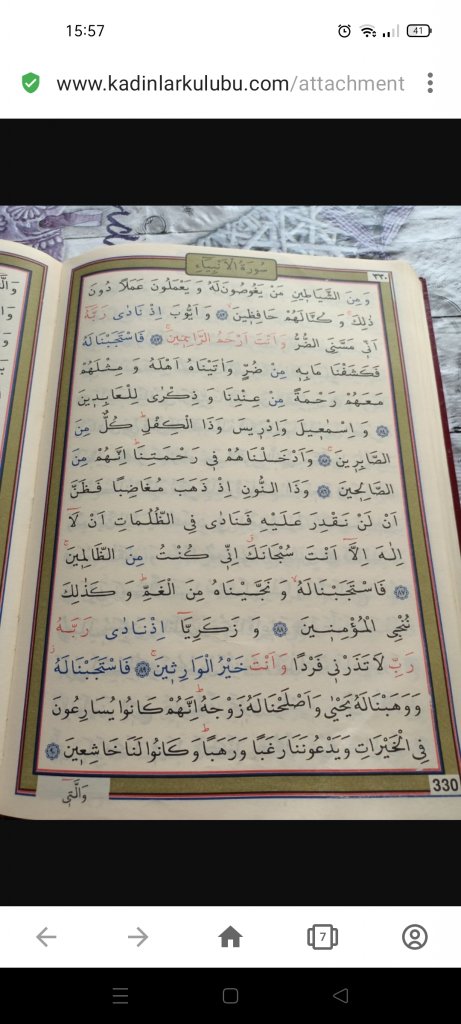 15:57
41
www.kadinlarkulubu.com/attachment
سُورَةُ الْاَنْبِيَاءِ
٣٣٠
وَمِنَ الشَّيَاطِينِ مَنْ يَغُوصُونَ لَهُ وَيَعْمَلُونَ عَمَلًا دُونَ
ذٰلِكَ وَكُنَّا لَهُمْ حَافِظِينَ ﴿٨٢﴾ وَاَيُّوبَ اِذْ نَادٰى رَبَّهُ
اَنّ۪ي مَسَّنِيَ الضُّرُّ وَاَنْتَ اَرْحَمُ الرَّاحِمِينَ ﴿٨٣﴾ فَاسْتَجَبْنَا لَهُ
فَكَشَفْنَا مَا بِهِ مِنْ ضُرٍّ وَاٰتَيْنَاهُ اَهْلَهُ وَمِثْلَهُمْ
مَعَهُمْ رَحْمَةً مِنْ عِنْدِنَا وَذِكْرٰى لِلْعَابِدِينَ
﴿٨٤﴾ وَاِسْمٰعِيلَ وَاِدْرِيسَ وَذَا الْكِفْلِ كُلٌّ مِنَ
الصَّابِرِينَ ﴿٨٥﴾ وَاَدْخَلْنَاهُمْ فِي رَحْمَتِنَا اِنَّهُمْ مِنَ
الصَّالِحِينَ ﴿٨٦﴾ وَذَا النُّونِ اِذْ ذَهَبَ مُغَاضِبًا فَظَنَّ
اَنْ لَنْ نَقْدِرَ عَلَيْهِ فَنَادٰى فِي الظُّلُمَاتِ اَنْ لَا
اِلٰهَ اِلَّا اَنْتَ سُبْحَانَكَ اِنّ۪ي كُنْتُ مِنَ الظَّالِمِينَ
﴿٨٧﴾ فَاسْتَجَبْنَا لَهُ وَنَجَّيْنَاهُ مِنَ الْغَمِّ وَكَذٰلِكَ
نُنْجِي الْمُؤْمِنِينَ ﴿٨٨﴾ وَزَكَرِيَّا اِذْ نَادٰى رَبَّهُ
رَبِّ لَا تَذَرْنِي فَرْدًا وَاَنْتَ خَيْرُ الْوَارِثِينَ ﴿٨٩﴾ فَاسْتَجَبْنَا لَهُ
وَوَهَبْنَا لَهُ يَحْيٰى وَاَصْلَحْنَا لَهُ زَوْجَهُ اِنَّهُمْ كَانُوا يُسَارِعُونَ
فِي الْخَيْرَاتِ وَيَدْعُونَنَا رَغَبًا وَرَهَبًا وَكَانُوا لَنَا خَاشِعِينَ ﴿٩٠﴾
330
وَالَّتِي
7